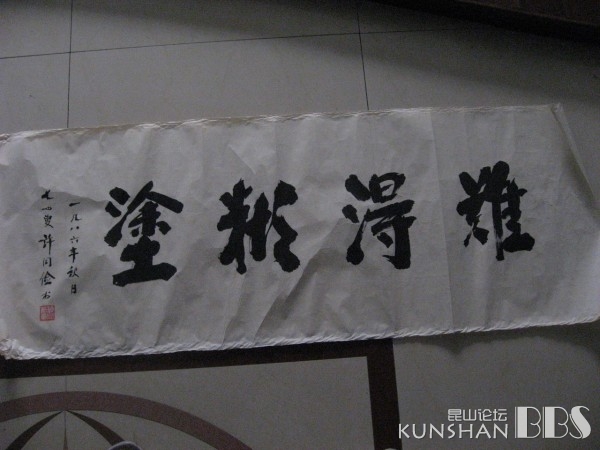 難得糊塗
一九八六年秋月
叟許同儉书
昆山论坛
KUNSHAN BBS